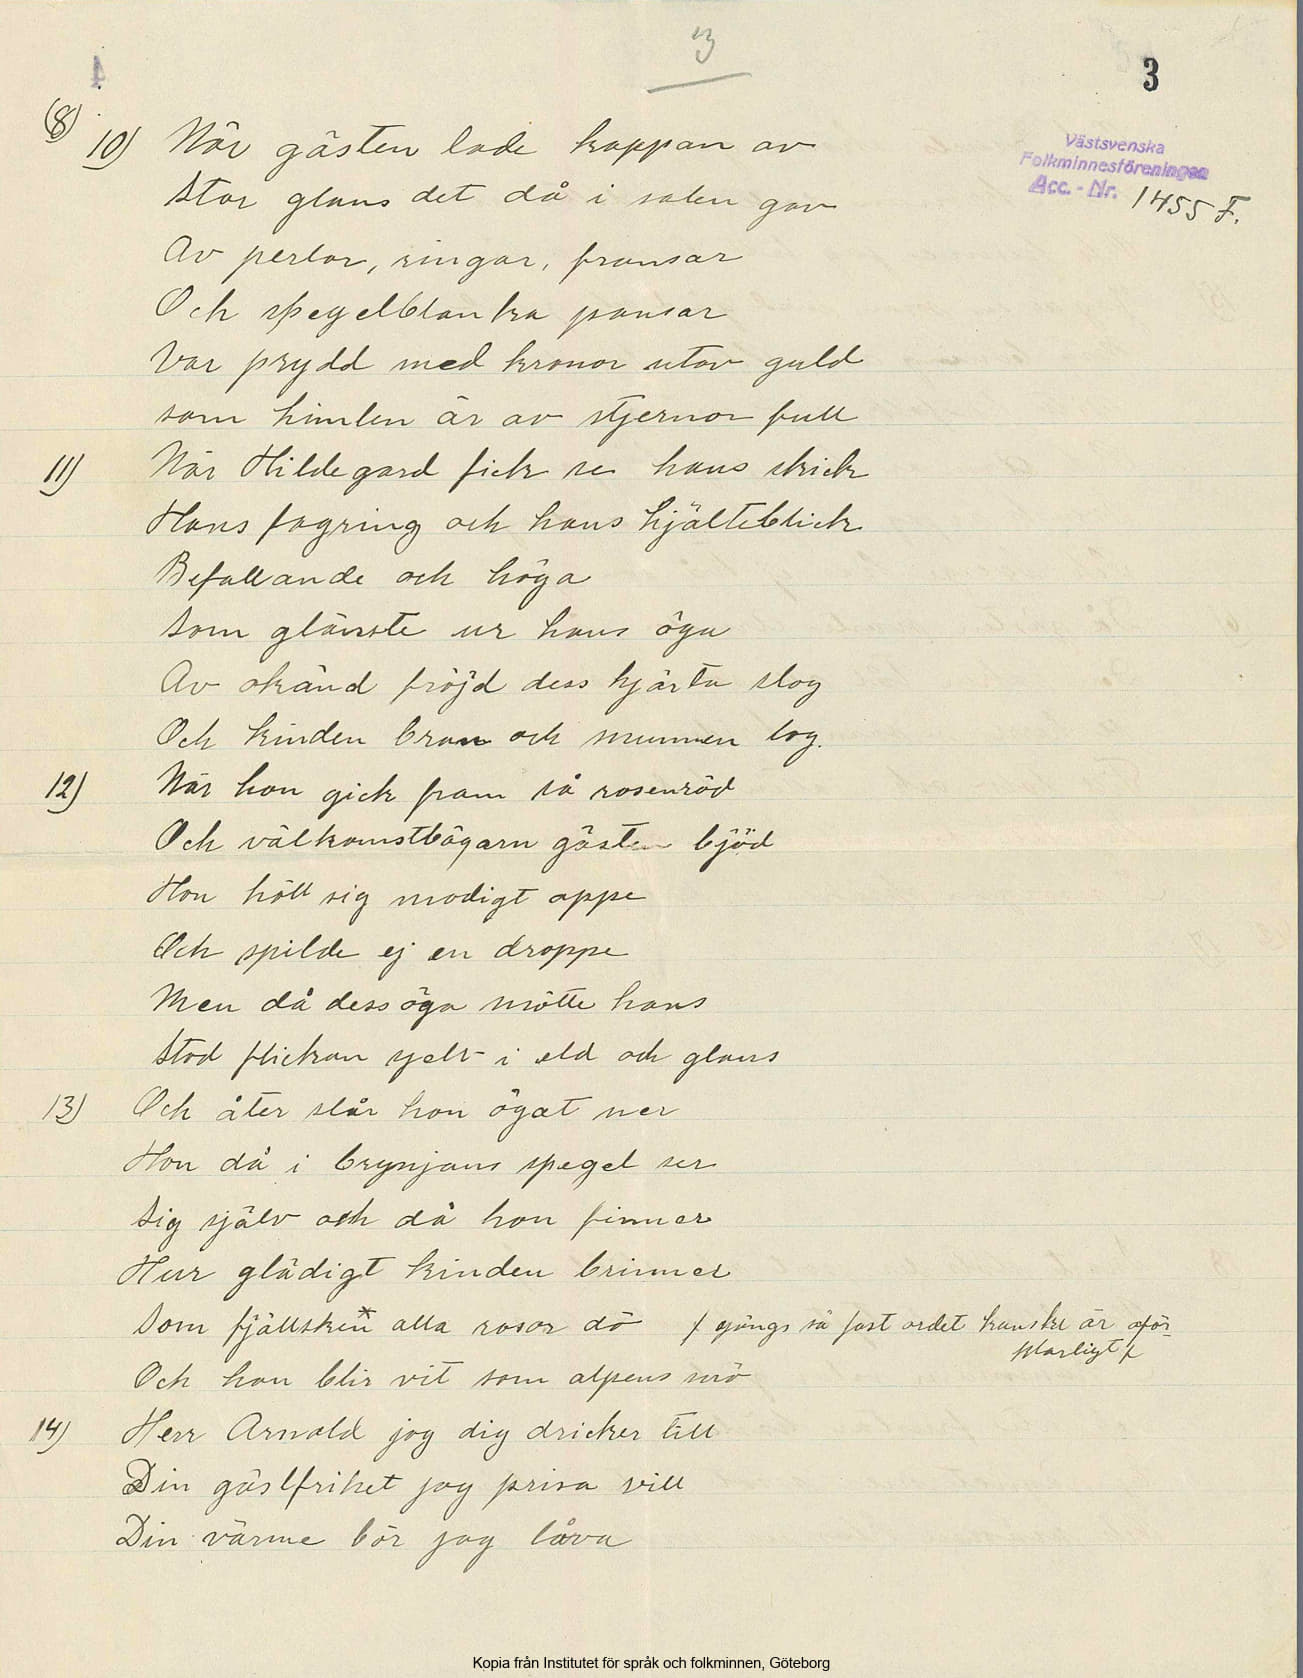 3
3
Västsvenska
Folkminnesföreningen
Acc. - Nr. 1455 F.
(8)
10) När gästen lade kappan av
Stor glans det då i salen gav
Av perlor, ringar, fransar
Och spegelblanka pansar
Var prydd med kronor utav guld
som himlen är av stjernor full
11) När Hildegard fick se hans skick
Hans fagring och hans hjälteblick
Befallande och höga
Som glänste ur hans öga
Av okänd fröjd dess hjärta slog
Och kinden bran och munnen log.
12) När hon gick fram så rosenröd
Och välkomstbägarn gästen bjöd
Hon höll sig modigt oppe
Och spilde ej en droppe
Men då dess öga mötte hans
Stod flickan sjelv i eld och glans
13) Och åter slår hon ögat ner
Hon då i brynjans spegel ser
Sig själv och då hon finner
Hur glädigt kinden brinner
Som fjällsken* alla rosor dö
sjöngs så fast ordet kanske är oför-
klarligt
Och hon blir vit som alpens snö
14) Herr Arnold jag dig dricker till
Din gästfrihet jag prisa vill
Din värme bör jag låva
Kopia från Institutet för språk och folkminnen, Göteborg